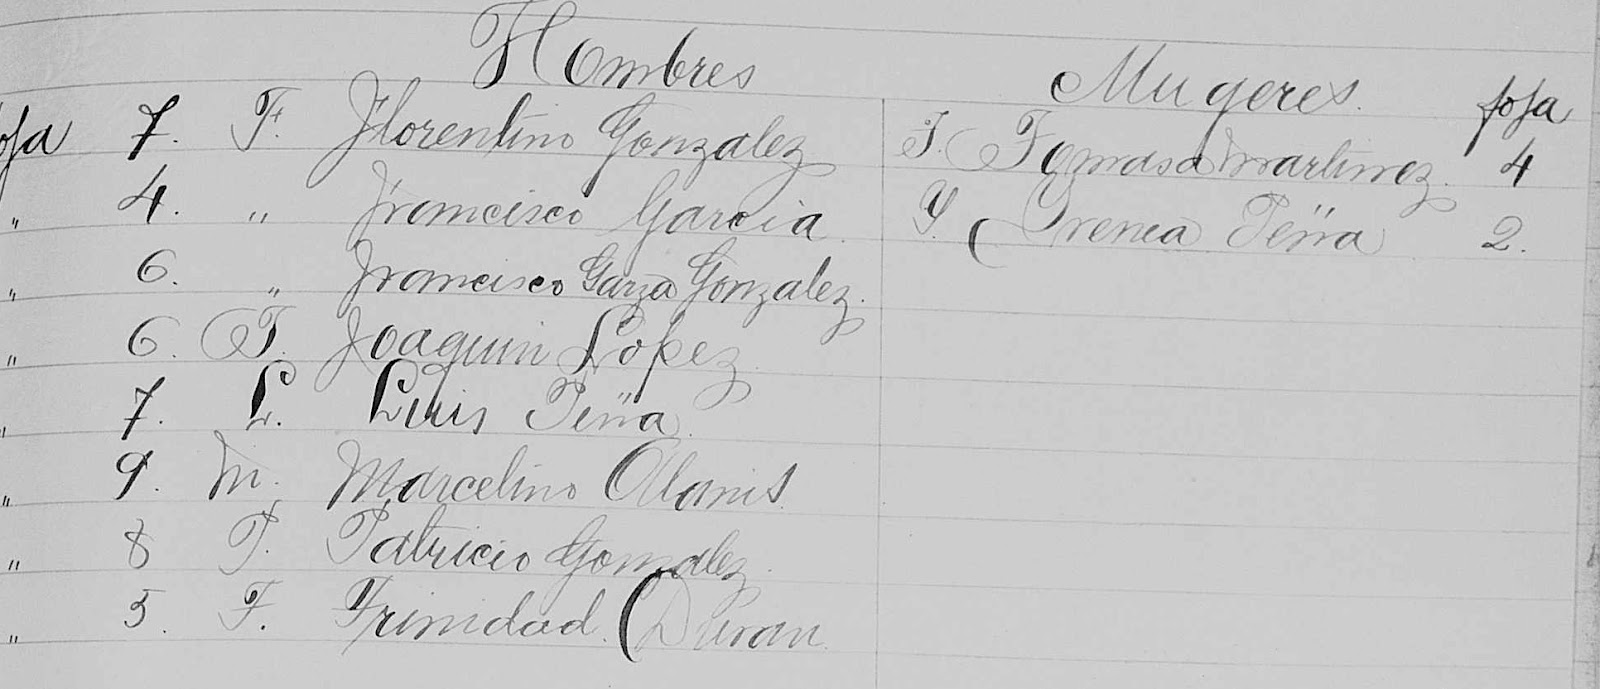 Hombres Mugeres. foja
foja 7. F. Florentino Gonzalez T. Tomasa Martinez. 4
" 4. " Francisco Garcia Y. Yrenea Peña 2.
" 6. " Francisco Garza Gonzalez.
" 6. J. Joaquin Lopez
" 7. L. Luis Peña
" 9. M. Marcelino Alanis.
" 8 P. Patricio Gonzalez
" 5. T. Trinidad Duran